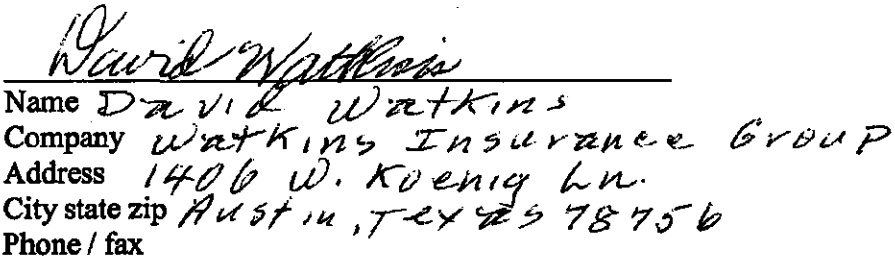 David Watkins
Name David Watkins
Company Watkins Insurance Group
Address 1406 W. Koenig Ln.
City state zip Austin, Texas 78756
Phone / fax